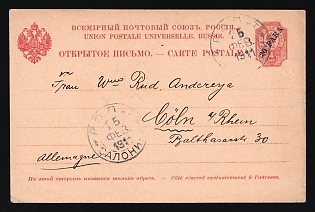 ВСЕМІРНЫЙ ПОЧТОВЫЙ СОЮЗЪ. РОССІЯ.
UNION POSTALE UNIVERSELLE. RUSSIE.
ОТКРЫТОЕ ПИСЬМО. — CARTE POSTALE
20 PARA
5
ФЕВ
1911
Frau Wwe Rud. Andereya
Cöln a/Rhein
Balthasarstr 30
Allemagne
5
ФЕВ
1911
САЛОНИ
На этой сторонѣ пишется только адресъ. — Côté réservé exclusivement à l'adresse.